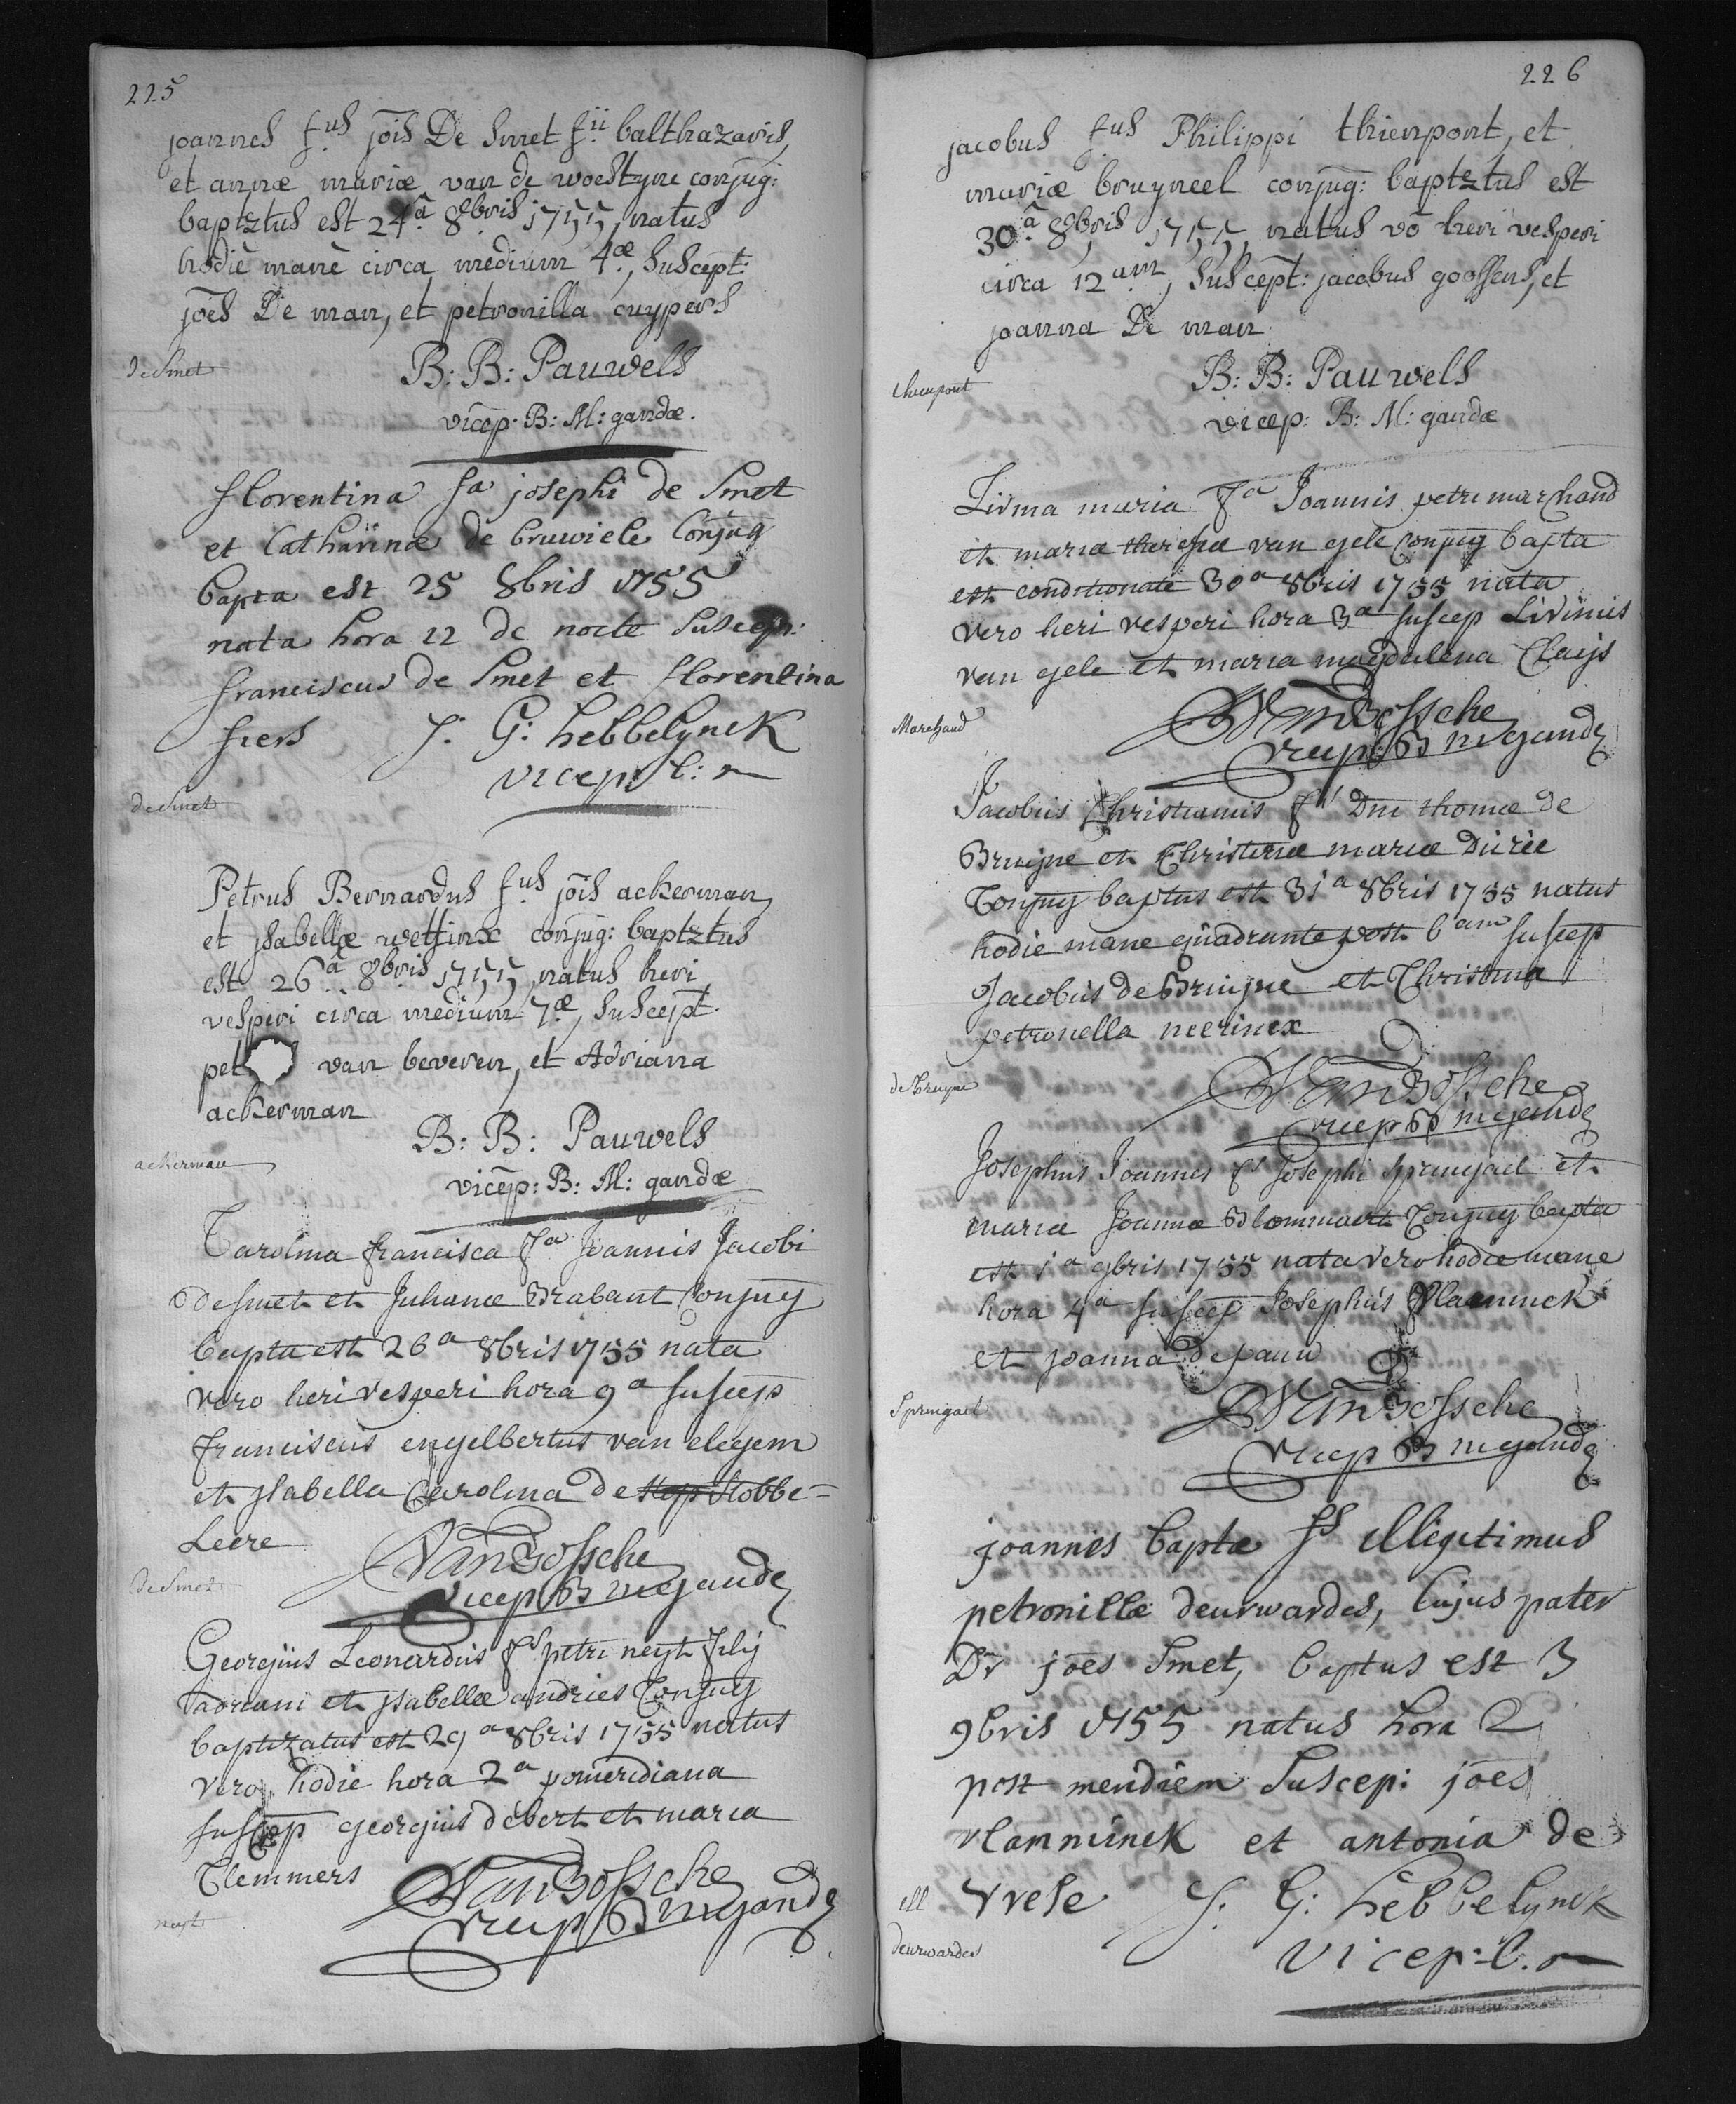 225
joannes f.us jois De Smet f.ii balthazaris,
et annæ mariæ van de woestyne conjug:
baptztus est 24.â 8bris 1755, natus
hodiè manè circa medium 4.æ, suscept:
joes De man, et petronilla cuypers
De Smet
B: B: Pauwels
vicep: B: M: gandæ.
florentina fa josephi de Smet
et Catharinæ de bruwiele Conjug
bapta est 25 8bris 1755
nata hora 12 de nocte suscep:
franciscus de Smet et florentina
fiers J: G: hebbelynck
vicep
de Smet
Petrus Bernardus f.us jois ackerman,
et ysabellæ wettinx conjug: baptztus
est 26.â 8bris 1755, natus heri
vesperi circa medium 7.æ, suscept.
pet van beveren, et Adriana
ackerman
B: B: Pauwels
ackerman
vicep: B: M: gandæ
Carolina francisca fa Joannis Jacobi
desmet et Julianæ Brabant Conjug
bapta est 26a 8bris 1755 nata
vero heri vesperi hora 9a suscep
franciscus engelbertus van elegem
et ysabella Carolina de Kobbe=
Leere
VanBossche
vicep B m gandæ
De Smet
Georgius Leonardus fs petri neyt filij
adriani et ysabellæ andries Conjug
baptizatus est 29a 8bris 1755 natus
vero hodie hora 2a pomeridiana
suscep georgius debert et maria
Clemmers
VanBossche
vicep B m gandæ
neyt
226
jacobus f.us Philippi thienpont, et
mariæ bruyneel conjug: baptztus est
30.â 8bris 1755, natus vō heri vesperi
circa 12am, suscept: jacobus goossens, et
joanna De man
B: B: Pauwels
thienpont
vicep: B: M: gandæ
Livina maria fa Joannis petri marchand
et mariæ theresiæ van gele conjug bapta
est conditionate 30a 8bris 1755 nata
vero heri vesperi hora 3a suscep Livinus
van gele et maria magdalena Claijs
VanBossche
Marchand
vicep B m gandæ
Jacobus Christianus fs Dni thomæ de
Bruijne et Christinæ mariæ Dirée
Conjug baptus est 31a 8bris 1755 natus
hodie mane quadrante post 6am suscep
Jacobus de Bruijne et Christina
petronella neerincx
VanBossche
de Bruyne
vicep B m gandæ
Josephus Joannes fs Josephi sprugael et
mariæ Joannæ Blommaert Conjug bapta
est 1a 9bris 1755 nata vero hodie mane
hora 4a suscep Josephus Vlaeminck
et joanna depauw
VanBossche
Sprugael
vicep B m gandæ
joannes bapta fs illigitimus
petronillæ deurwardes, Cujus pater
Dr joes Smet, baptus est 3
9bris 1755 natus hora 2
post meridiem suscep: joes
vlamminck et antonia de
ill Vrese J: G: hebbelynck
deurwardes
vicep: